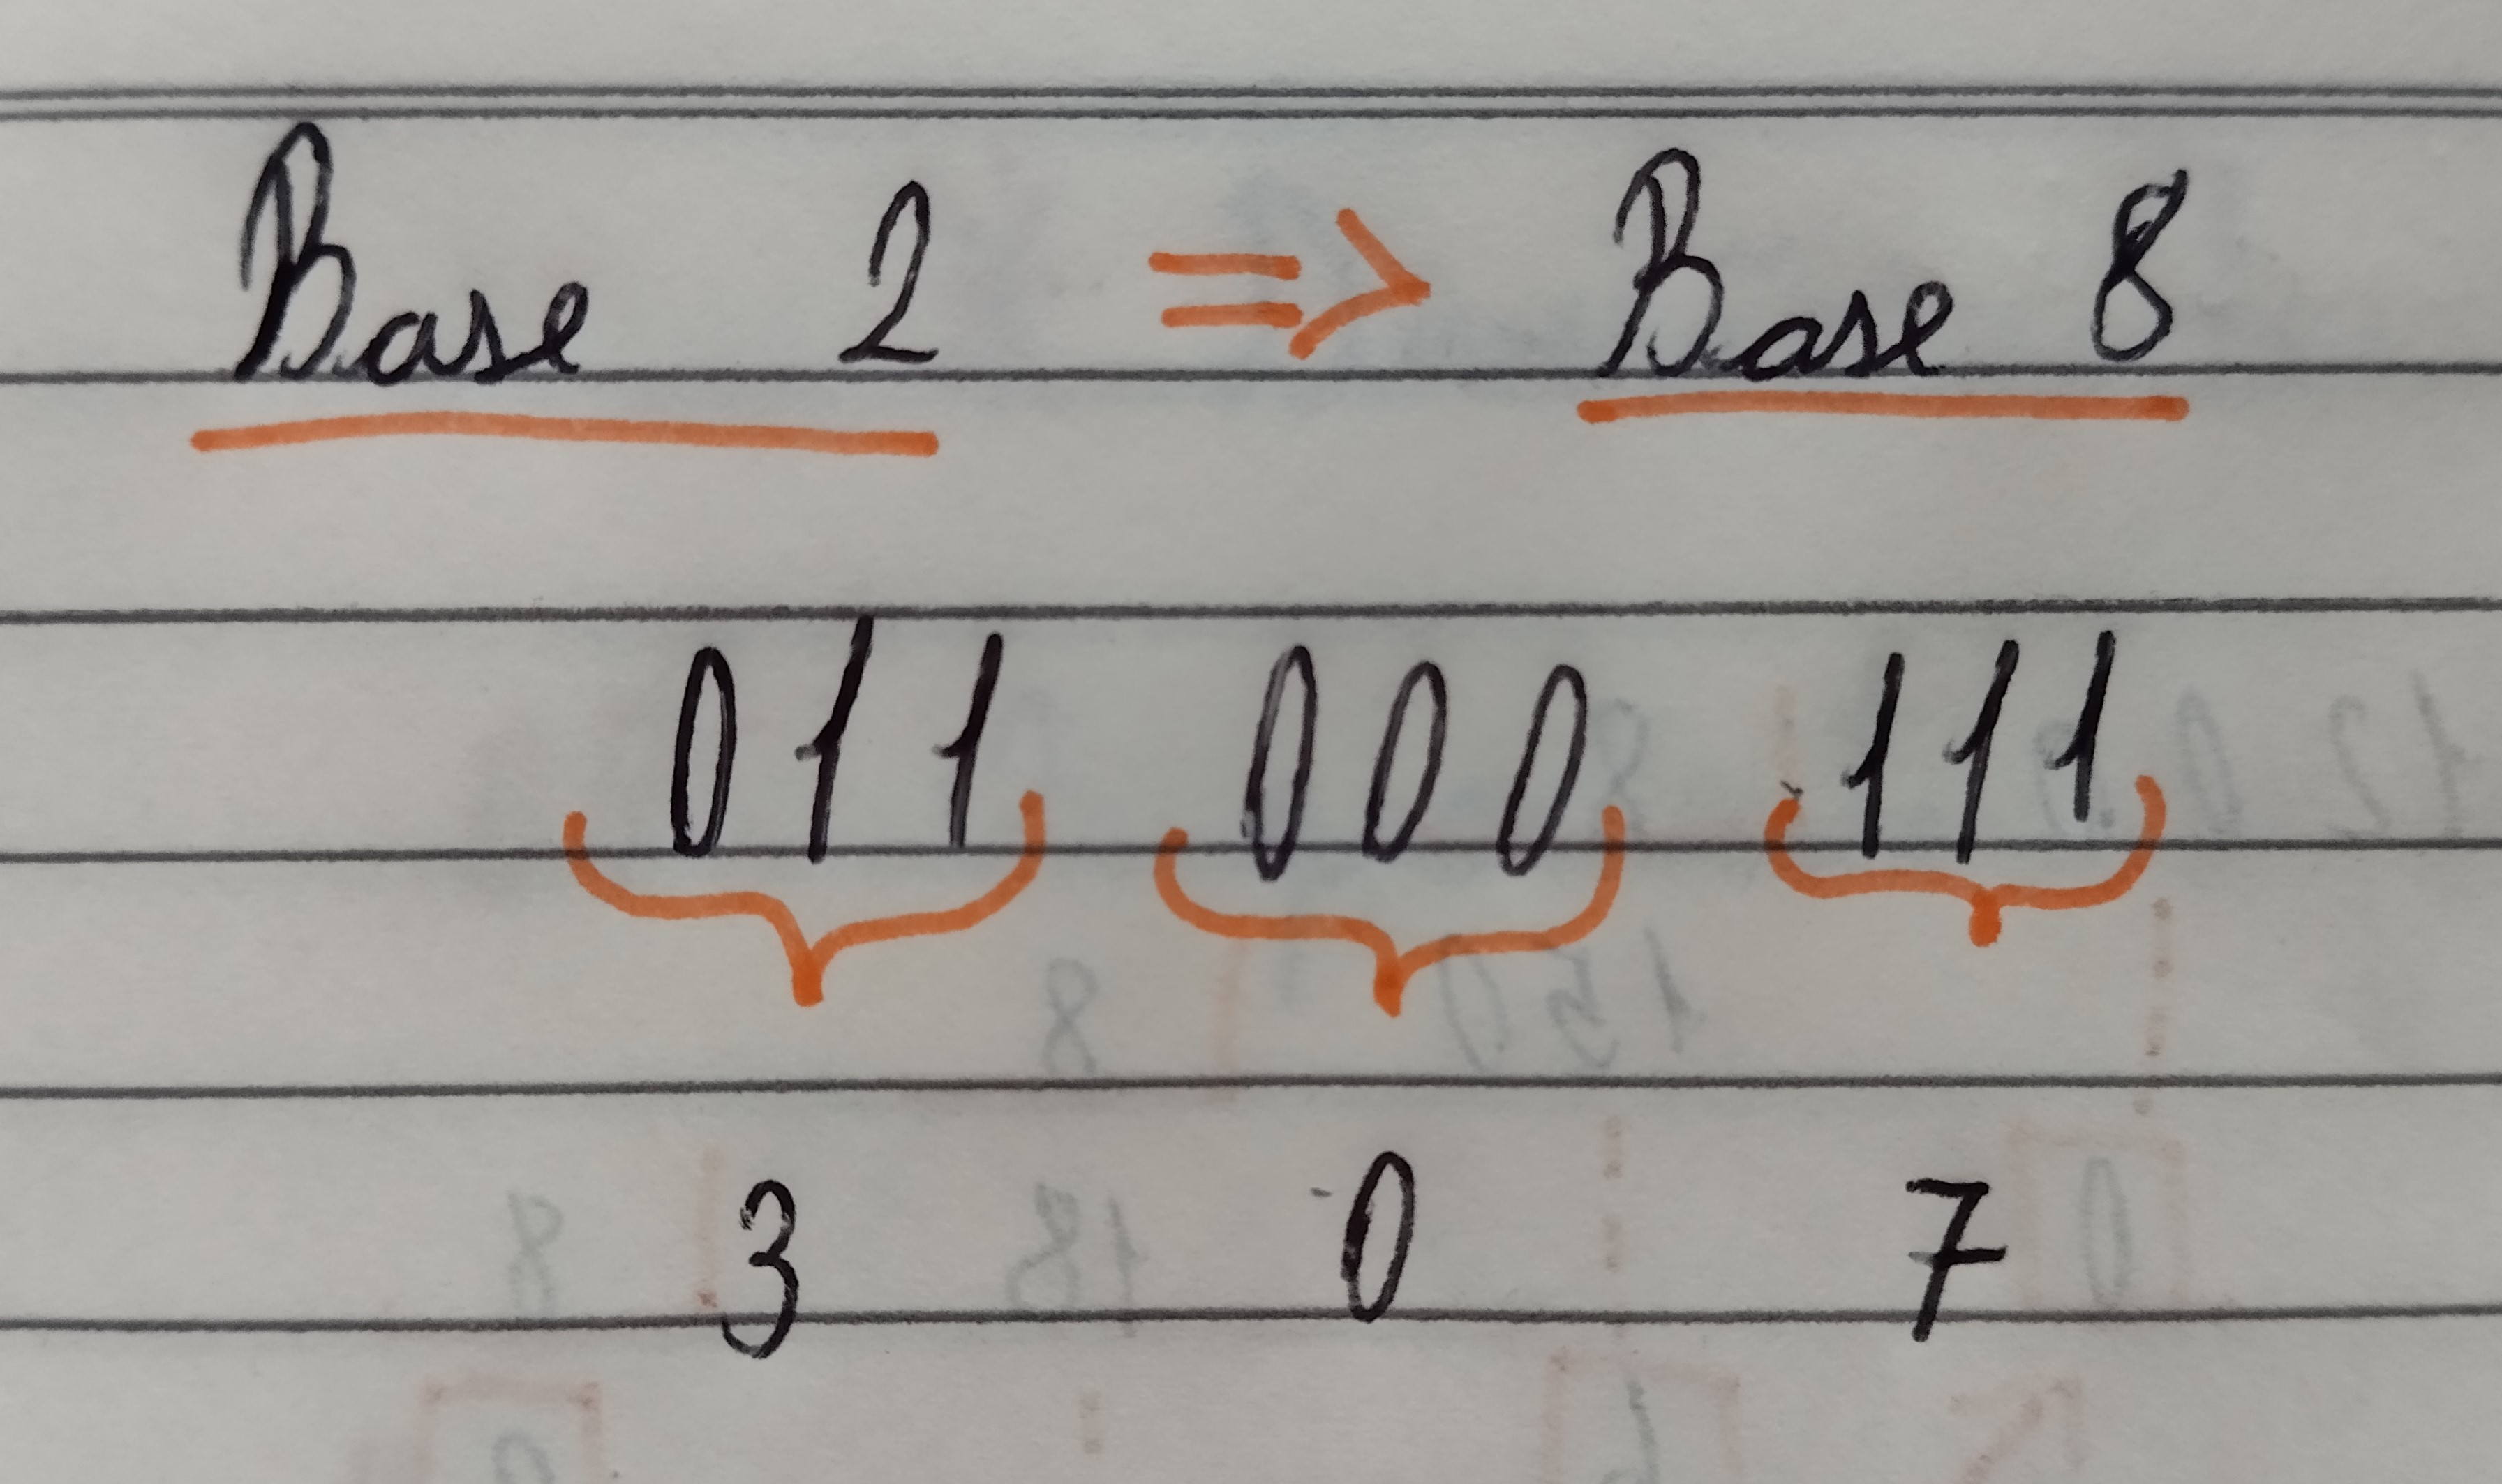 Base 2 => Base 8
011 000 111
3 0 7